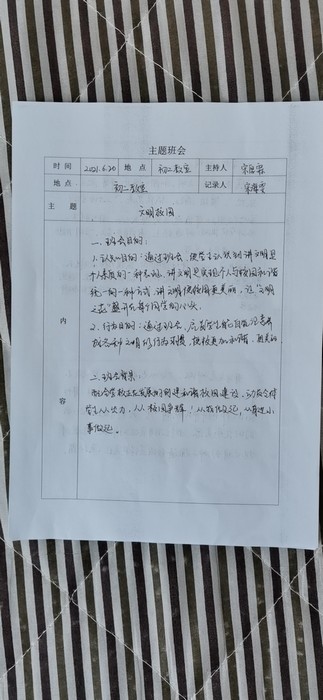 主题班会
时间 2021.6.20 地点 初二教室 主持人
地点 初二教室 记录人
主题 文明校园
内容
一、班会目的：
1.认识目的：通过班会，使学生认识到讲文明是
个人素质的一种表现，讲文明是实现个人与校园和谐
统一的一种方式，讲文明使校园更美丽，让"文明
之花"盛开在每个同学的心头。
2.行为目的：通过班会，
各种文明行为习惯，使校更加和谐，更美丽
二、班会背景：
配合学校正在开展的创建和谐校园建设，动员全体
学生人人出力，人人校园争辉！从我做起，从身边小
事做起。